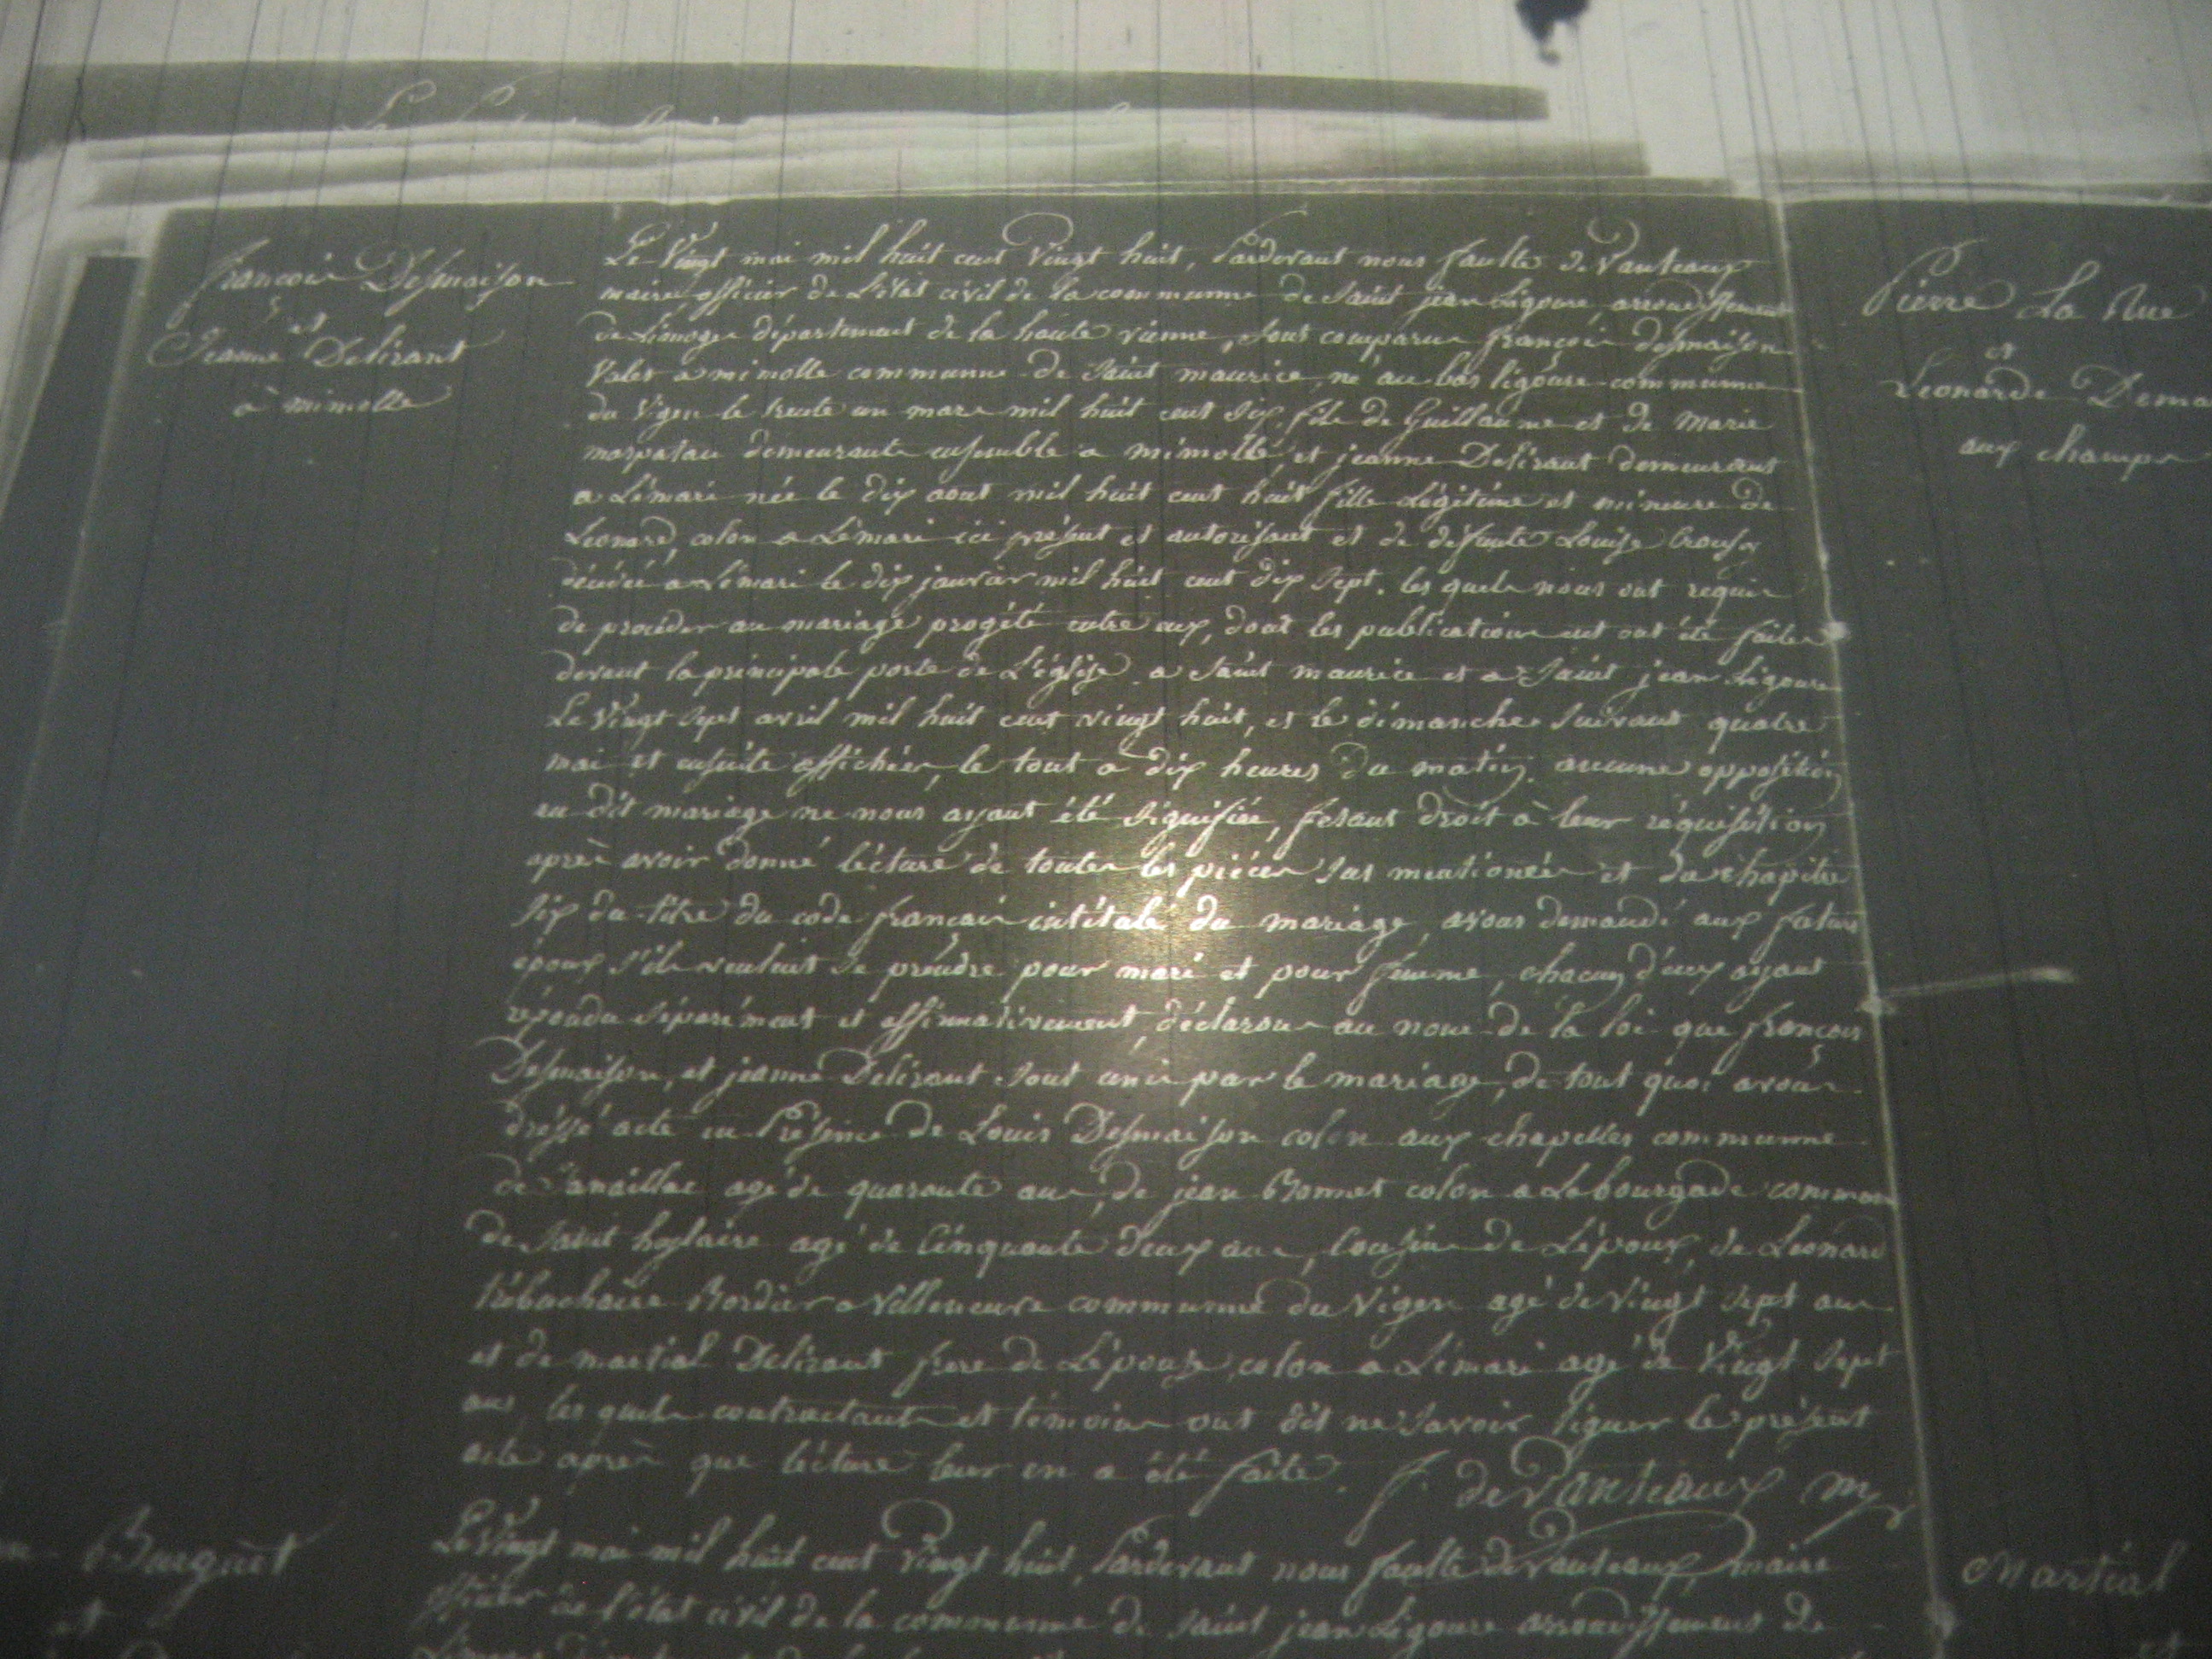 François Desmaison
et
Jeanne Delirant
à mimolle
Le Vingt mai mil huit cent Vingt huit, Pardevant nous faulte de Vanteaux
maire officier de L'état civil de la communne de Saint jean Ligoure, arrondissement
de Limoges département de la haute vienne, sont comparus françois desmaison
Valet a mimolle communne de Saint maurice, né au bas ligoure communne
du Vigen le trente un mars mil huit cent Six, fils de Guillaume et de Marie
demeurants ensemble a mimolle et jeanne Delirant demeurant
a Lémari née le dix aout mil huit cent huit fille Légitime et mineure de
Leonard, colon a Lémari ici présent et autorisant et de défunte Louise
décédée a Lémari le dix janvier mil huit cent dix Sept. les quels nous ont requis
de procéder au mariage progété entre eux, dont les publications ont été faites
devant la principale porte de L'église a Saint maurice et a Saint jean Ligoure
Le Vingt Sept avril mil huit cent vingt huit, et le dimanche Suivant quatre
mai et ensuite affichées, le tout a dix heures du matin. aucune opposition
au dit mariage ne nous ayant été Signifiée, fesant droit à leur réquisition
après avoir donné lécture de toutes les piéces Sus mentionées et du chapitre
Six du titre du code francais intitulé du mariage, avons demandé aux futurs
époux S'ils veulent Se préndre pour mari et pour fémme, chacun d'eux ayant
répondu Séparément et affirmativement, déclarons au nom de la loi que françois
Desmaison, et jeanne Delirant Sont unis par le mariage, de tout quoi avons
dréssé acte en Présence de Louis Desmaison colon aux chapelles communne
de Janaillac agé de quarante ans, de jean Bonnet colon a Labourgade
de Saint hylaire agé de Cinquante deux ans, Cousins de L'époux, de Leonard
Bordier a Villeneuve communne du Vigen agé de Vingt Sept ans
et de martial Delirant frere de L'épouse, colon a Lémari agé de Vingt Sept
ans, les quels contractants et témoins ont dit ne Savoir Signer le présent
acte après que lécture leur en a été faite. f. de Vanteaux
Burguet
et
Le Vingt mai mil huit cent Vingt huit, Pardevant nous faulte de Vanteaux, maire
officier de l'état civil de la communne de Saint jean Ligoure arrondissement de
Pierre La Rue
et
Léonarde
aux champs
Martial
et